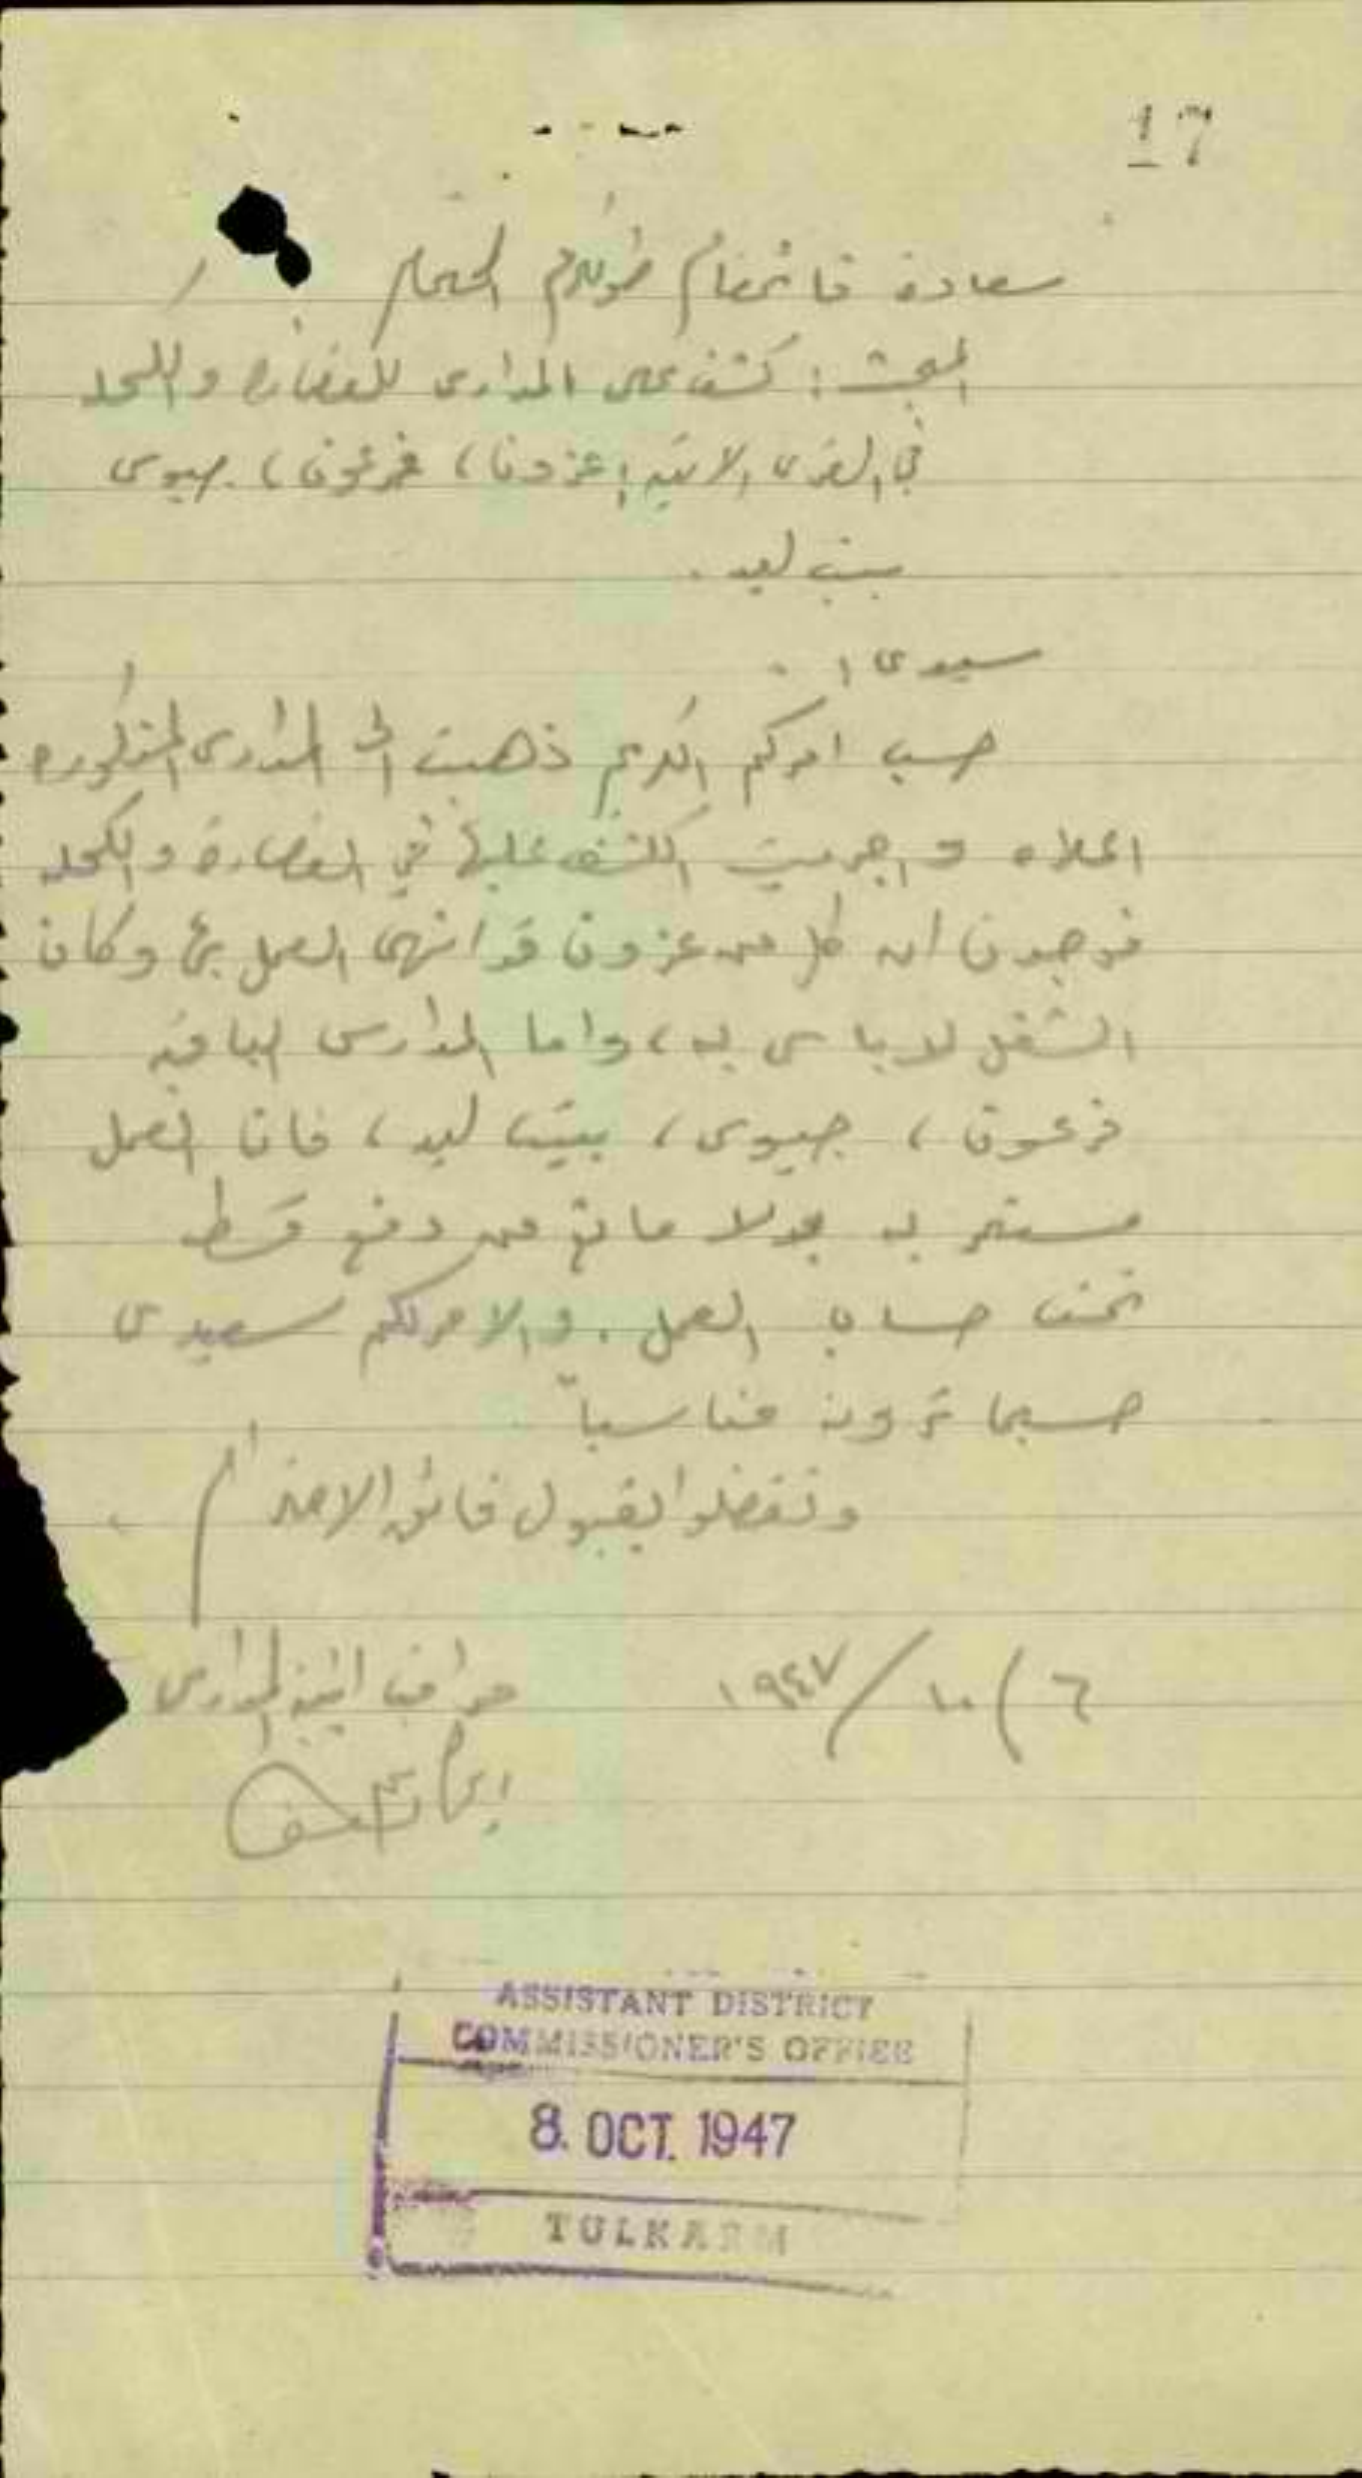 17
سعادة قائمقام طولكرم المحترم
المبحث : كشف على المدارس للقصارة والكحله
في القرى الاتية عزون، فرعون، جيوس
بيت ليد .
سيدي :
حسب امركم الكريم ذهبت الى المدارس المذكوره
اعلاه و اجريت الكشف عليها في القصارة والكحله
فوجدت ان كل من عزون قد انهى العمل وكان
الشغل لا باس به، واما المدارس الباقيه
فرعون ، جيوس ، بيت ليد ، فان العمل
مستمر به ولا مانع من دفع قسط
تحت حساب العمل . والامر لكم سيدي
حسبما ترونه مناسباً
وتفضلوا بقبول فائق الاحترام ،
٦ / ١٠ / ١٩٤٧
مراقب ابنية المدارس
ASSISTANT DISTRICT
COMMISSIONER'S OFFICE
8. OCT. 1947
TULKARM